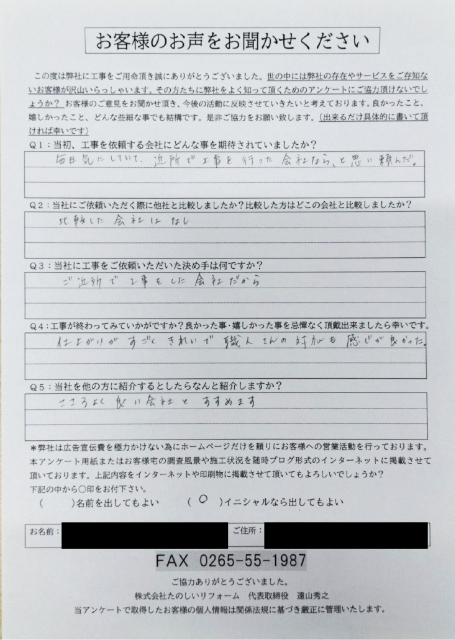 お客様のお声をお聞かせください
この度は弊社に工事をご用命頂き誠にありがとうございました。世の中には弊社の存在やサービスをご存知な
いお客様が沢山いらっしゃいます。その方たちに弊社をよく知って頂くためのアンケートにご協力頂けないでし
ょうか？ お客様のご意見をお聞かせ頂き、今後の活動に反映させていきたいと考えております。良かったこと、
嬉しかったこと、どんな些細な事でも結構です。是非ご協力をお願い致します。（出来るだけ具体的に書いて頂
ければ幸いです）
Q１：当初、工事を依頼する会社にどんな事を期待されていましたか？
毎日気にしていて、近所で工事を行った会社なら、と思い頼んだ。
Q２：当社にご依頼いただく際に他社と比較しましたか？比較した方はどこの会社と比較しましたか？
比較した会社はなし
Q３：当社に工事をご依頼いただいた決め手は何ですか？
ご近所で工事をした会社だから
Q４：工事が終わってみていかがですか？良かった事・嬉しかった事を忌憚なく頂戴出来ましたら幸いです。
仕上がりがすごくきれいで職人さんの対応も感じが良かった。
Q５：当社を他の方に紹介するとしたらなんと紹介しますか？
こころよく良い会社とすすめます
＊弊社は広告宣伝費を極力かけない為にホームページだけを頼りにお客様への営業活動を行っております。
本アンケート用紙またはお客様宅の調査風景や施工状況を随時ブログ形式のインターネットに掲載させて
頂いております。上記内容をインターネットや印刷物に掲載させて頂いてもよろしいでしょうか？
下記の中から〇印をお付け下さい。
（　　）名前を出してもよい　　（ 〇 ）イニシャルなら出してもよい
お名前：　ご住所：
FAX 0265-55-1987
ご協力ありがとうございました。
株式会社たのしいリフォーム　代表取締役　遠山秀之
当アンケートで取得したお客様の個人情報は関係法規に基づき厳正に管理いたします。